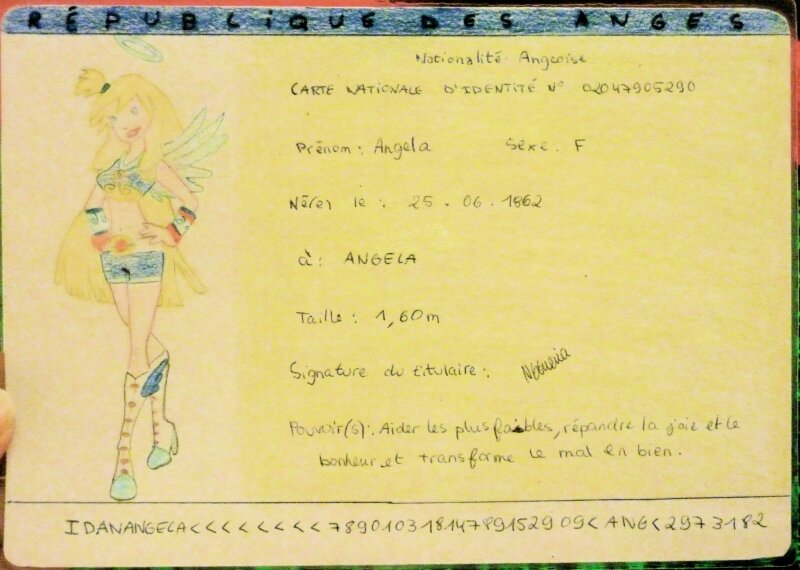 RÉPUBLIQUE DES ANGES
Nationalité Angeoise
CARTE NATIONALE D'IDENTITÉ N° 02047905290
Prénom : Angela Sexe . F
Né(e) le : 25 . 06 . 1862
à : ANGELA
Taille : 1,60m
Signature du titulaire :
Pouvoir(s) : Aider les plus faibles, répandre la joie et le
bonheur et transforme le mal en bien.
IDANANGELA<<<<<<<<7890103181478915290 9<ANG<2973182